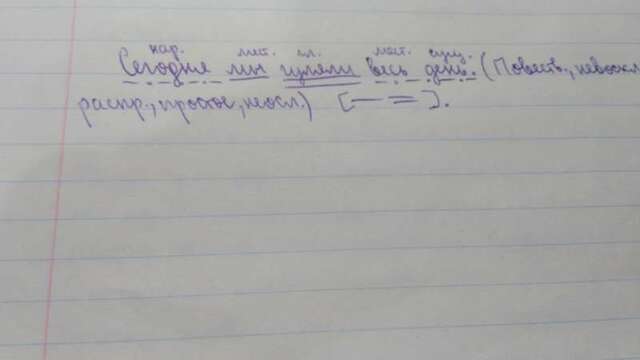 нар. мест. гл. мест. сущ.
Сегодня мы гуляли весь день. (Повеств., невоскл
распр., простое, неосл.) [— =].